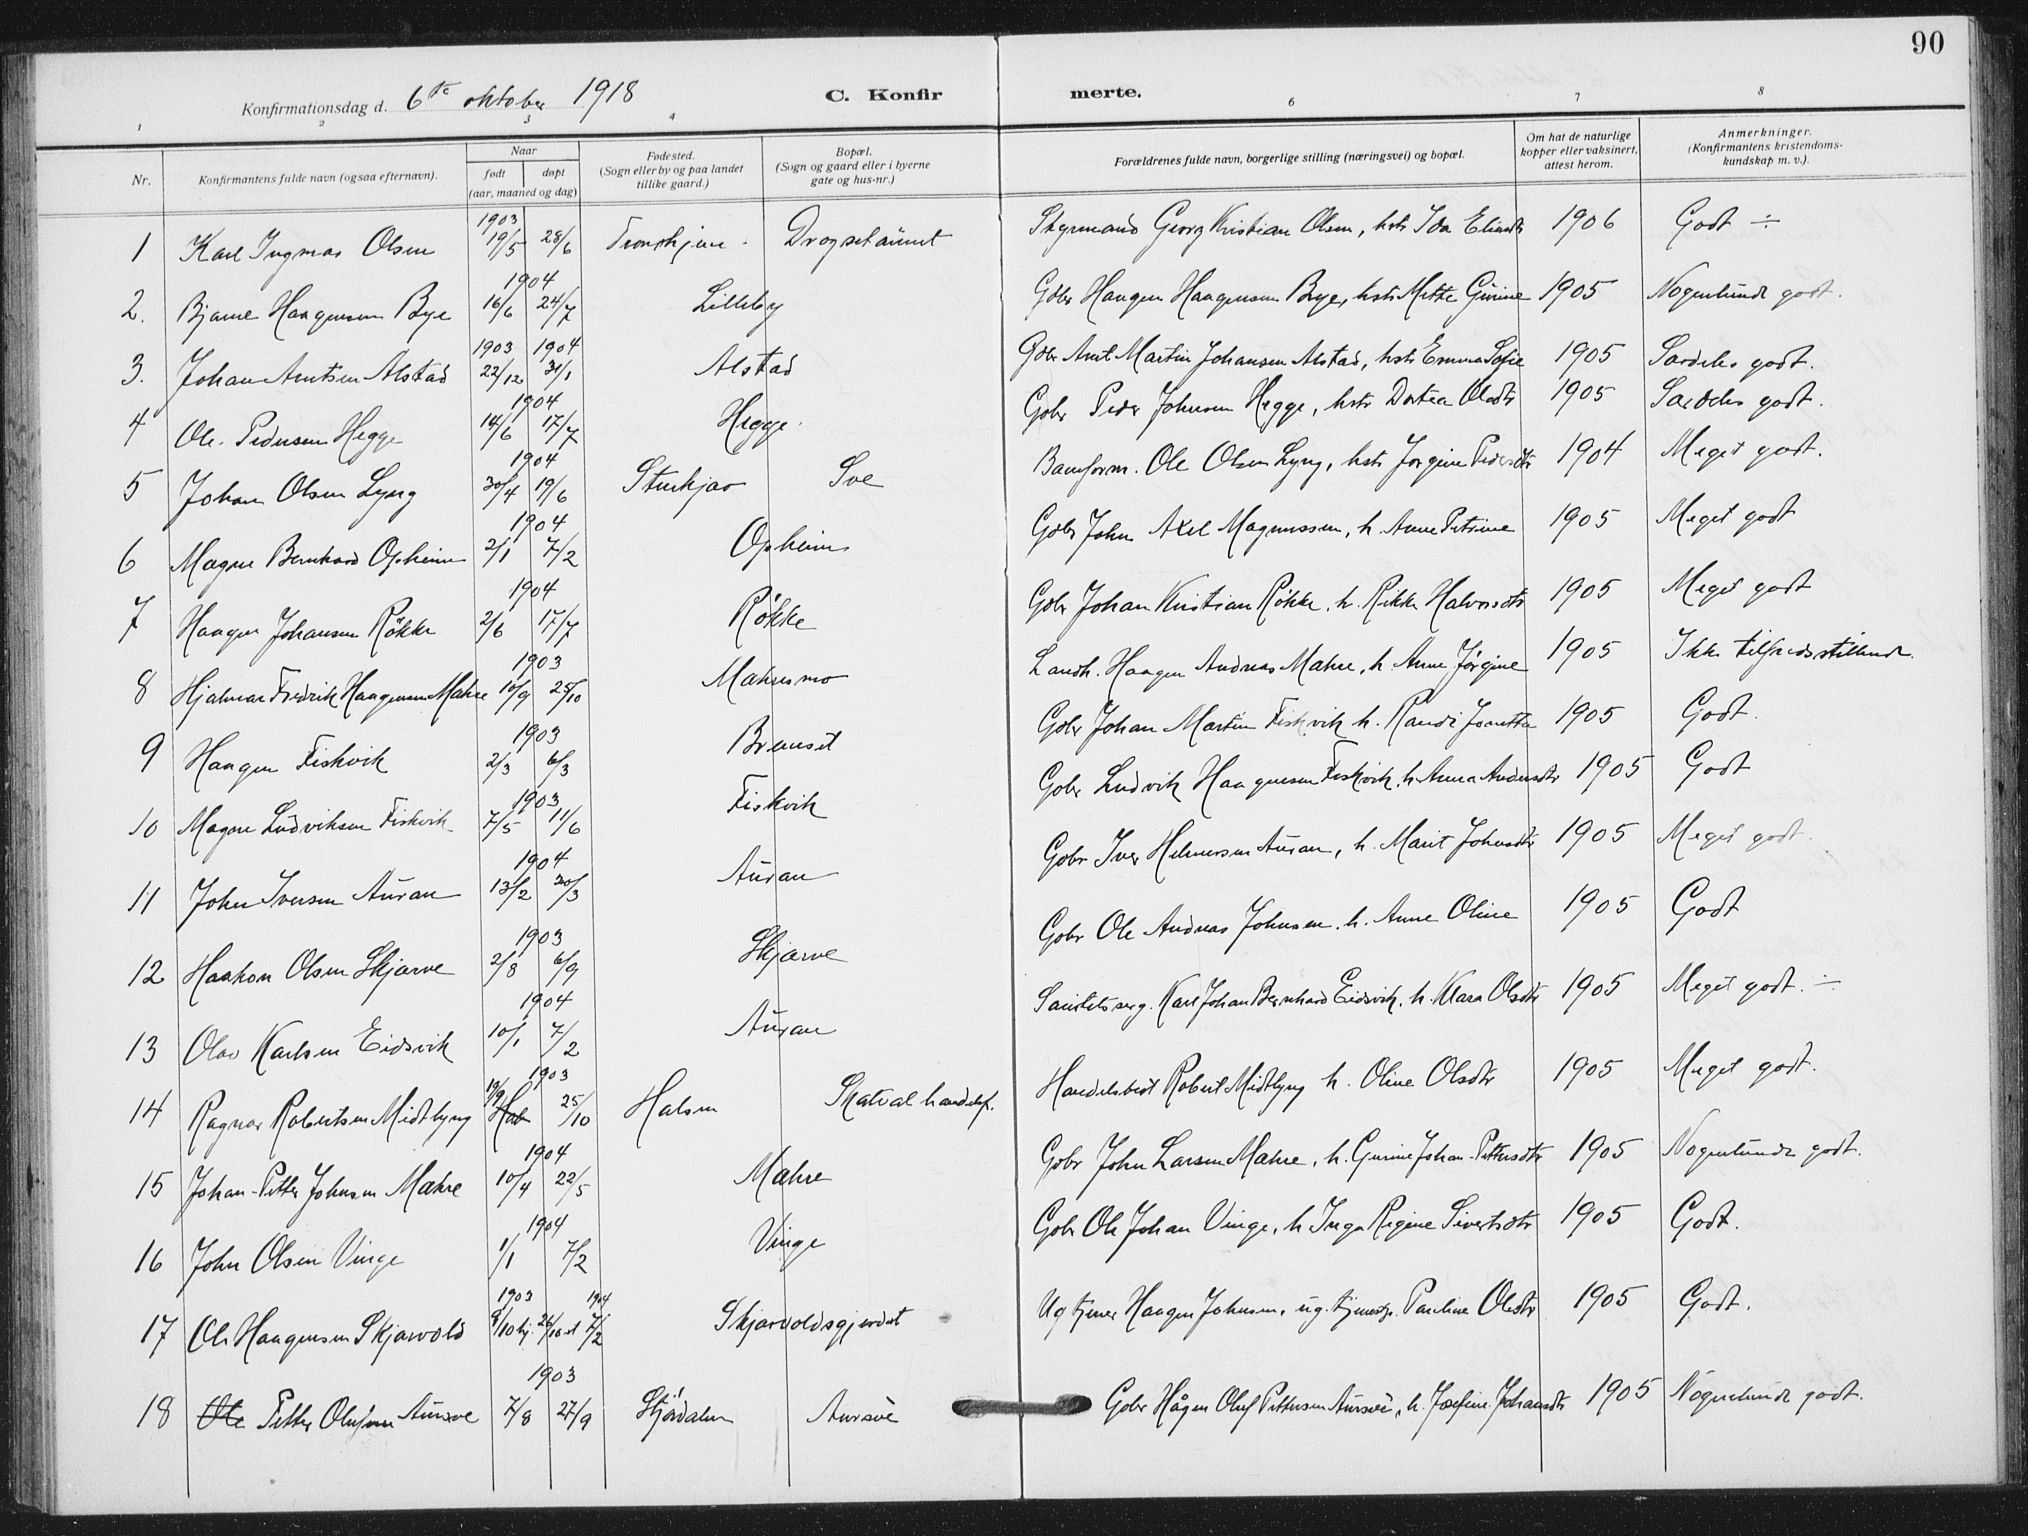 90
Konfirmationsdag d. 6te oktober 1918 C. Konfirmerte.
1 2 3 4 6 7 8
Nr. Konfirmantens fulde navn (ogsaa efternavn). Naar født døpt (aar, maaned og dag) Fødested. (Sogn eller by og paa landet tillike gaard.) Bopæl. (Sogn og gaard eller i byerne gate og hus-nr.) Forældrenes fulde navn, borgerlige stilling (næringsvei) og bopæl. Om hat de naturlige kopper eller vaksinert, attest herom. Anmerkninger. (Konfirmantens kristendomskundskap m. v.).
1 Karl Ingmar Olsen 1903 19/5 28/6 Tronhjem. Drogsetaunet Styrmand Georg Kristian Olsen, hstr Ida 1906 Godt ÷
2. Bjarne Haagensen Bye 1904 16/6 24/7 Lilleby Gdbr Haagen Haagensen Bye, hstr Mette Gurine 1905 Nogenlunde godt.
3. Johan Arntsen Alstad 1903 22/12 1904 31/1 Alstad Gdbr Arnt Martin Johansen Alstad, hstr Emma Sofie 1905 Særdeles godt.
4 Ole Pedersen Hegge 1904 14/6 17/7 Hegge. Gdbr Peder Johnsen Hegge, hstr Dortea Olsdtr 1905 Særdeles godt.
5 Johan Olsen Lyng 1904 30/4 19/6 Sve Baneform. Ole Olsen Lyng, hstr Jørgine Pedersdtr 1904 Meget godt.
6 Magne Bernhard Opheim 1904 2/1 7/2 Opheim Gdbr John Axel Magnussen, h. Anne Petrine 1905 Meget godt
7 Haagen Johansen Røkke 1904 2/6 17/7 Røkke Gdbr Johan Kristian Røkke, h. Rikke Halvorsdtr 1905 Meget godt
8 Hjalmar Fredrik Haagensen Mæhre 1903 10/9 25/10 Mæhresmo Landh. Haagen Andreas Mæhre, h. Anne Jørgine 1905 Ikke tilfredsstillende.
9 Haagen Fiskvik 1903 2/3 6/3 Bremset Gdbr Johan Martin Fiskvik h. Randi Jonetta 1905 Godt.
10 Magne Ludviksen Fiskvik 1903 7/5 11/6 Fiskvik Gdbr Ludvik Haagensen Fiskvik, h. Anna Andersdtr 1905 Godt
11 John Iversen Auran 1904 13/2 20/3 Auran Gdbr Iver Helmersen Auran, h. Marit Johnsdtr 1905 Meget godt.
12 Haakon Olsen Skjærve 1903 2/8 6/9 Skjærve Gdbr Ole Andreas Johnsen, h. Anne Oline 1905 Godt
13 Olav Karlsen Eidsvik 1904 10/1 7/2 Auran Sanitetsserg. Karl Johan Bernhard Eidsvik, h. Klara Olsdtr 1905 Meget godt. ÷
14 Ragnar Robertsen Midtlyng 1903 19/9 25/10 Halsen Skatval handelsf. Handelsbest Robert Midtlyng h. Oline Olsdtr 1905 Meget godt.
15 Johan-Petter Johnsen Mæhre 1904 10/4 22/5 Mæhre Gdbr John Larsen Mæhre, h. Gurine Johan-Pettersdtr 1905 Nogenlunde godt.
16 John Olsen Vinge 1904 1/1 7/2 Vinge Gdbr Ole Johan Vinge, h Inga Regine Sivertsdtr 1905 Godt.
17 Ole Haagensen Skjærvold 1903 9/10 hj. 26/10 st 1904 7/2 Skjærvoldsgjerdet Ug tjener Haagen Johnsen, ug. tjenestp. Pauline Olsdtr 1905 Godt.
18 Ole Petter Olufsen Aursve 1903 7/8 27/9 Stjørdalen Aursve Gdbr Hågen Oluf Pettersen Aursve, h. Josefine Johansdtr 1905 Nogenlunde godt.